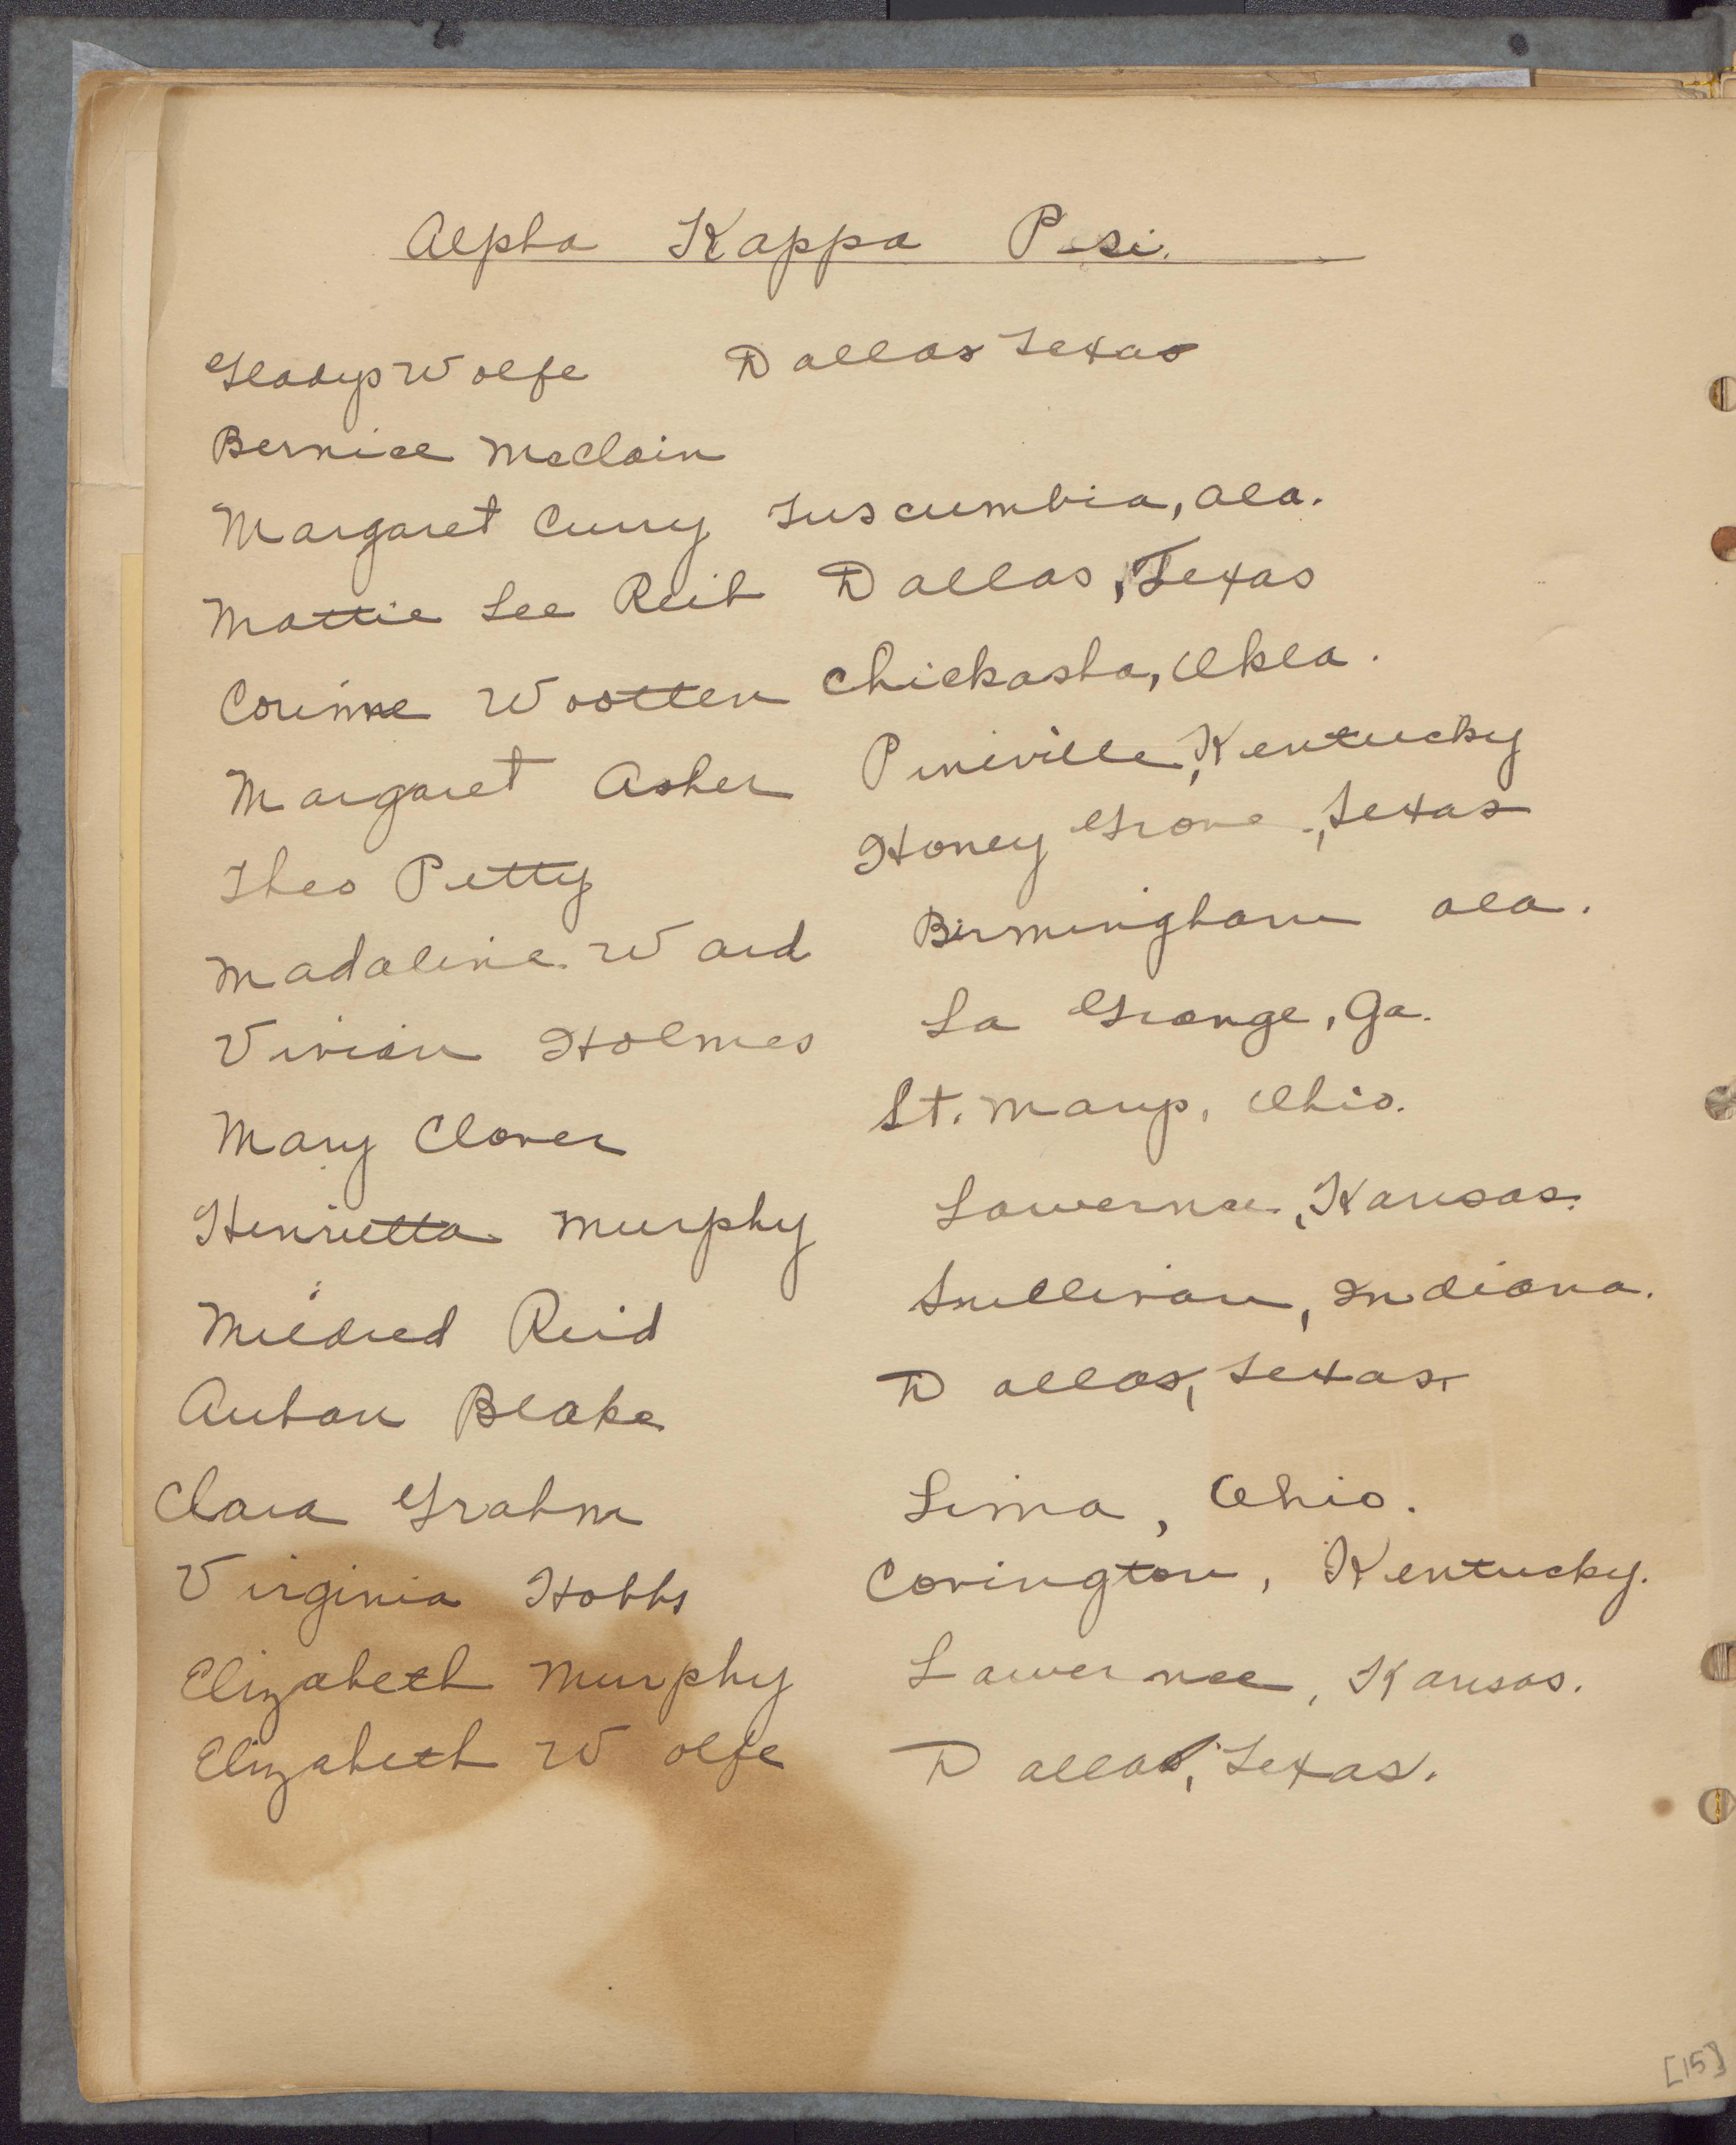 Alpha Kappa Psi.
Gladys Wolfe Dallas Texas
Bernice McClain
Margaret Curry Tuscumbia, Ala.
Mattie Lee Reib Dallas, Texas
Corinne Wootten Chickasha, Okla.
Margaret Asher Pineville, Kentucky
Theo Petty Honey Grove, Texas
Madaline Ward Birmingham Ala.
Vivian Holmes La Grange, Ga.
Mary Clover St. Marys, Ohio.
Henrietta Murphy Lawernce, Kansas.
Mildred Reid Sullivan, Indiana.
Blake Dallas, Texas.
Clara Grahm Lima, Ohio.
Virginia Hobbs Covington, Kentucky.
Elizabeth Murphy Lawernce, Kansas.
Elizabeth Wolfe Dallas, Texas.
[15]